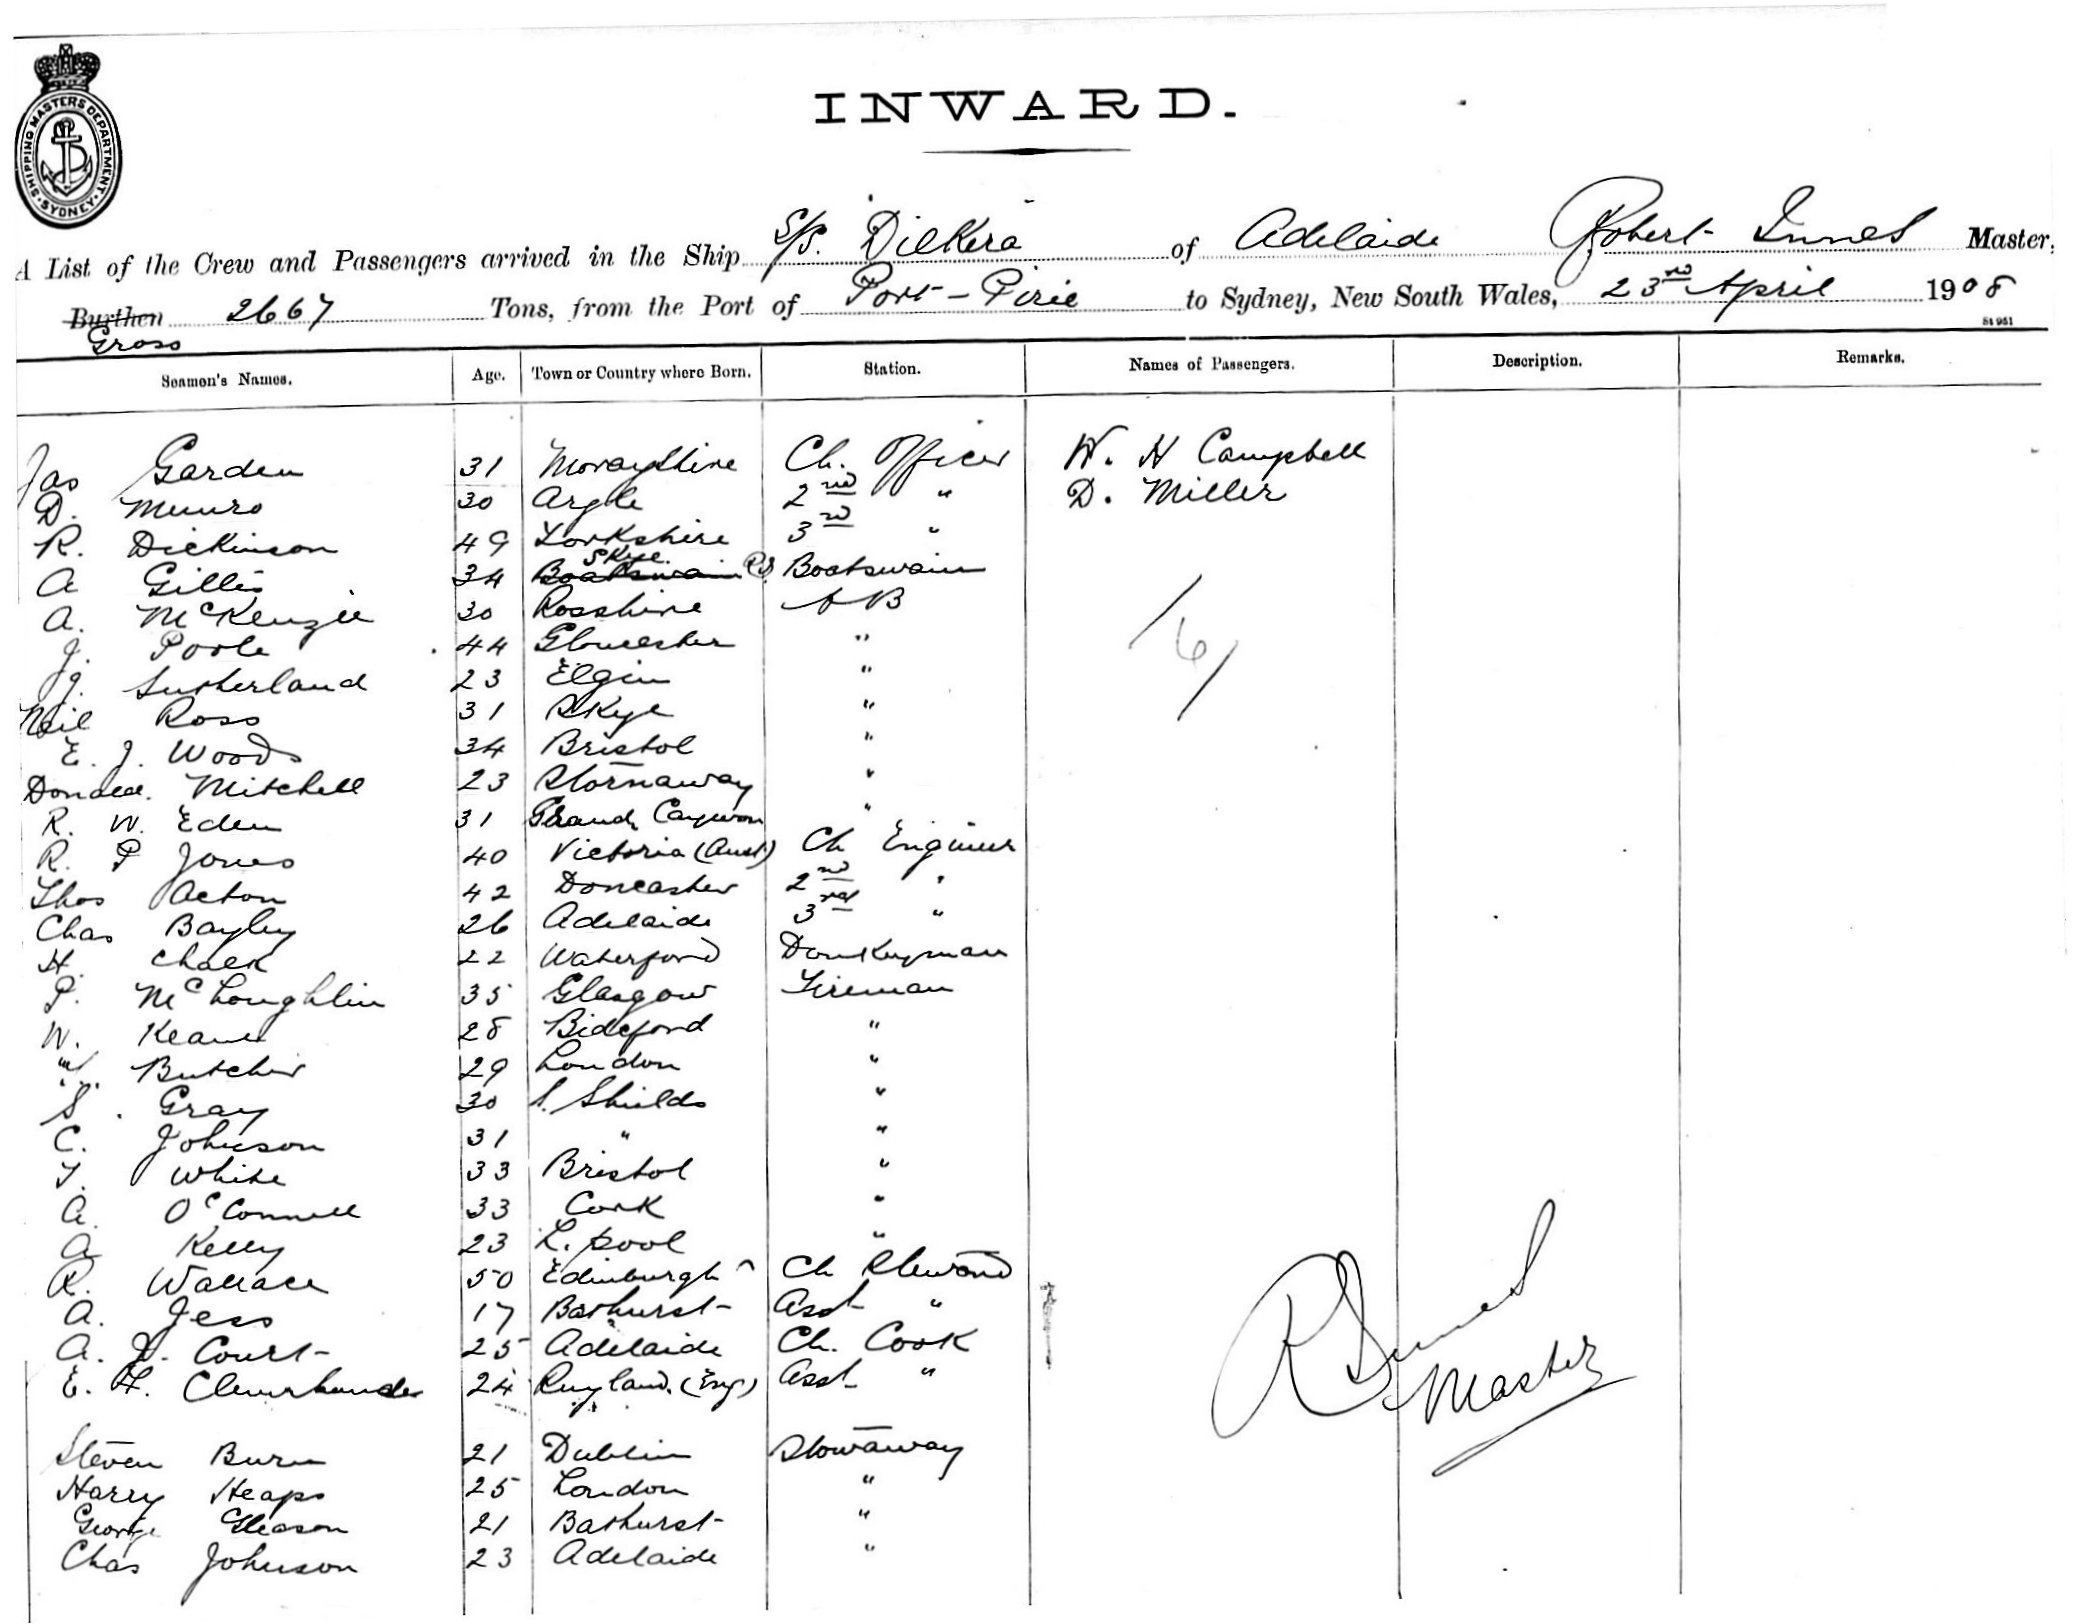 SHIPPING MASTERS DEPARTMENT. SYDNEY.
INWARD.
A List of the Crew and Passengers arrived in the Ship S/S. Dilkera of Adelaide Robert Innes Master,
Burthen 2667 Tons, from the Port of Port-Pirie to Sydney, New South Wales, 23rd April 1908
Gross
St 951
Seamen's Names. Age. Town or Country where Born. Station. Names of Passengers. Description. Remarks.
Jas Garden 31 Morayshire Ch. Officer W. H Campbell
D. Munro 30 Argle 2nd " D. Miller
R. Dickinson 49 Yorkshire 3rd "
A Gillis 34 Boatswain Skye R.I. Boatswain
A. McKenzie 30 Rosshire AB
J. Poole 44 Gloucester "
J. Sutherland 23 Elgin "
Neil Ross 31 Skye "
E. J. Woods 34 Bristol "
Donald. Mitchell 23 Stornaway "
R. W. Eden 31 Grand "
R. P Jones 40 Victoria (Aust) Ch Engineer
Thos Acton 42 Doncaster 2nd "
Chas Bayley 26 Adelaide 3rd "
H. Chalk 22 Waterford Donkeyman
P. McLoughlin 35 Glasgow Fireman
W. Keane 28 Bideford "
Butcher 29 London "
S. Gray 30 S. Shields "
C. Johnson 31 " "
T. White 33 Bristol "
A. O'Connell 33 Cork "
A Kelly 23 L. pool "
R. Wallace 50 Edinburgh Ch Steward
A. Jess 17 Bathurst Asst "
A. J. Court 25 Adelaide Ch. Cook
E. H. 24 (Eng) Asst "
Steven Burn 21 Dublin Stowaway
Harry Heaps 25 London "
George Gleason 21 Bathurst "
Chas Johnson 23 Adelaide "
/6/
R Innes
Master